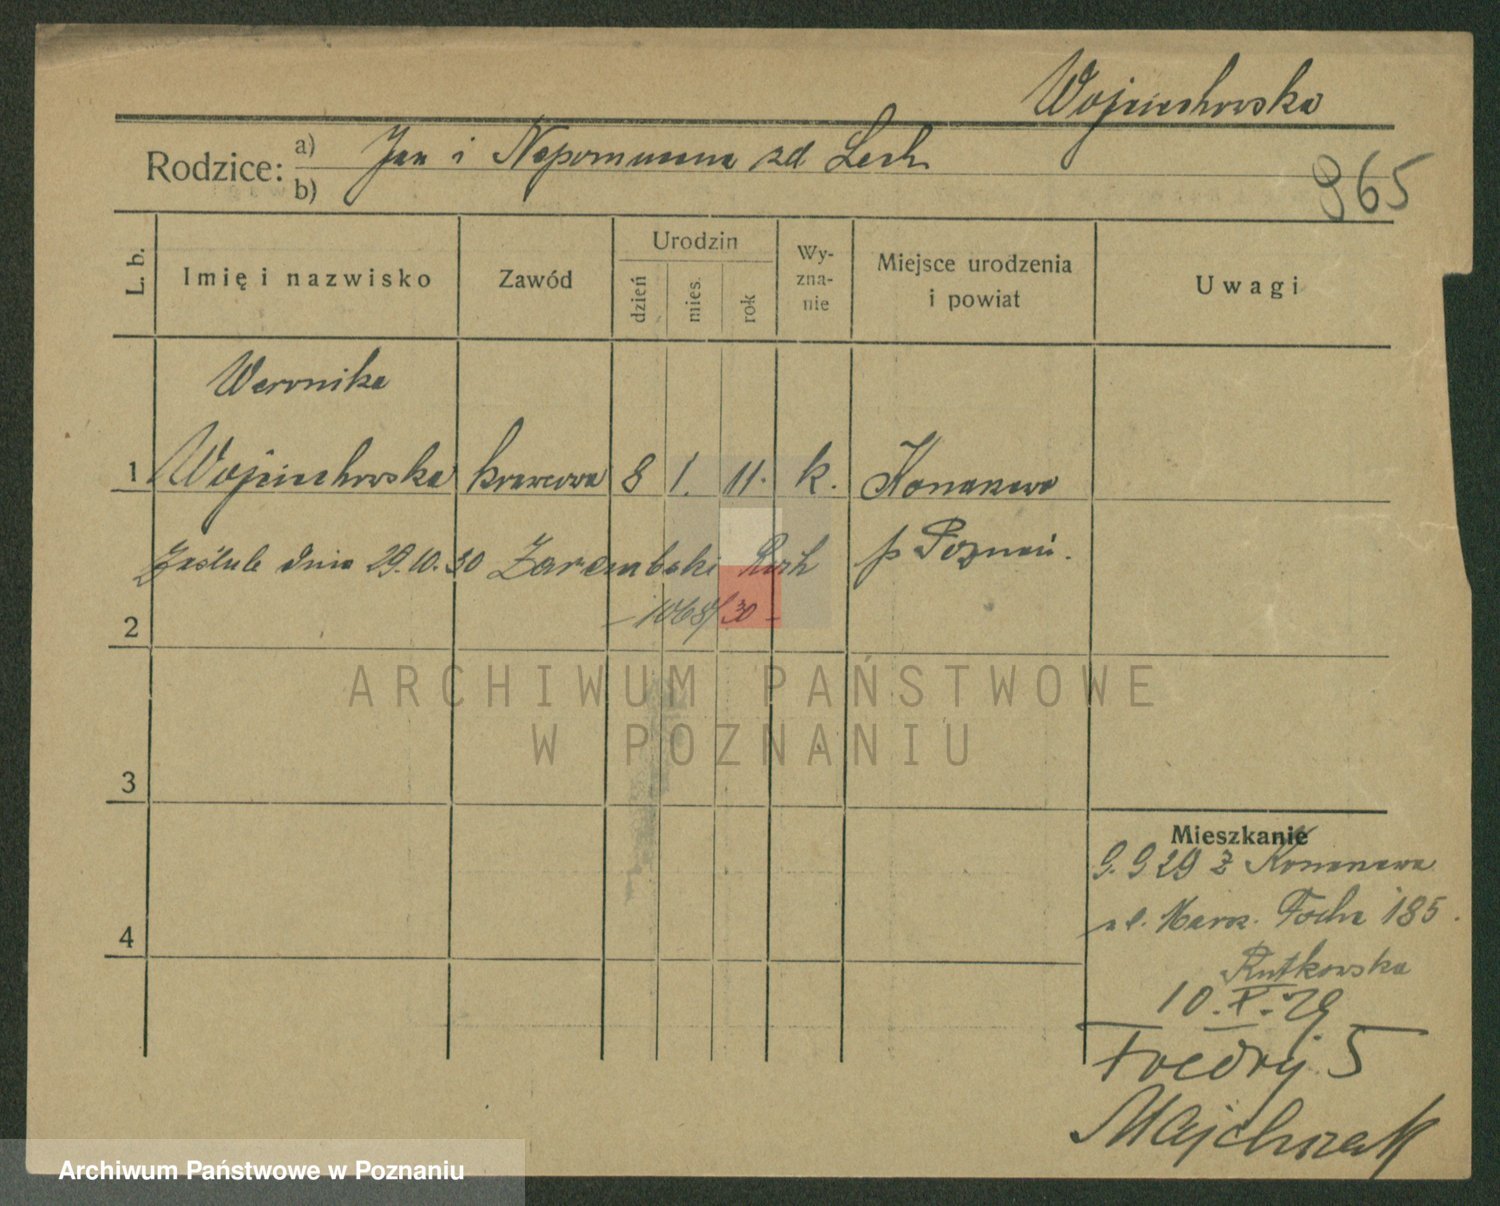 Wojciechowska
965
Rodzice: a) b)
Jan i Nepomucena zd Lech
L. b.
Imię i nazwisko
Zawód
Urodzin
dzień
mies.
rok
Wy-
zna-
nie
Miejsce urodzenia
i powiat
Uwagi
Weronika
1 Wojciechowska krawcowa 8 1. 11. k. Konarzewo
p Poznań.
Zaślub. dnia 29.10.30 Zarembski Roch
1068/30
2
3
4
Mieszkanie
9.9 29 z Konarzewa
ul. Marsz. Focha 185.
Rutkowska
10.X.29
Fredry 5
Majchrzak
ARCHIWUM PAŃSTWOWE
W POZNANIU
Archiwum Państwowe w Poznaniu